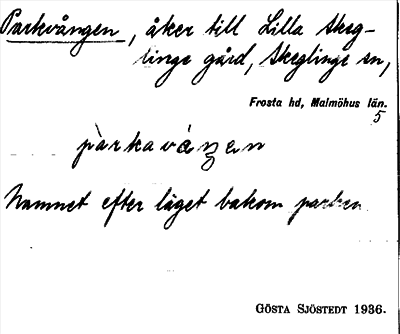 Parkvången, åker till Lilla Skeg-
linge gård, Skeglinge sn,
Frosta hd, Malmöhus län.
5
pàrkavàŋen
Namnet efter läget bakom parken
GÖSTA SJÖSTEDT 1936.